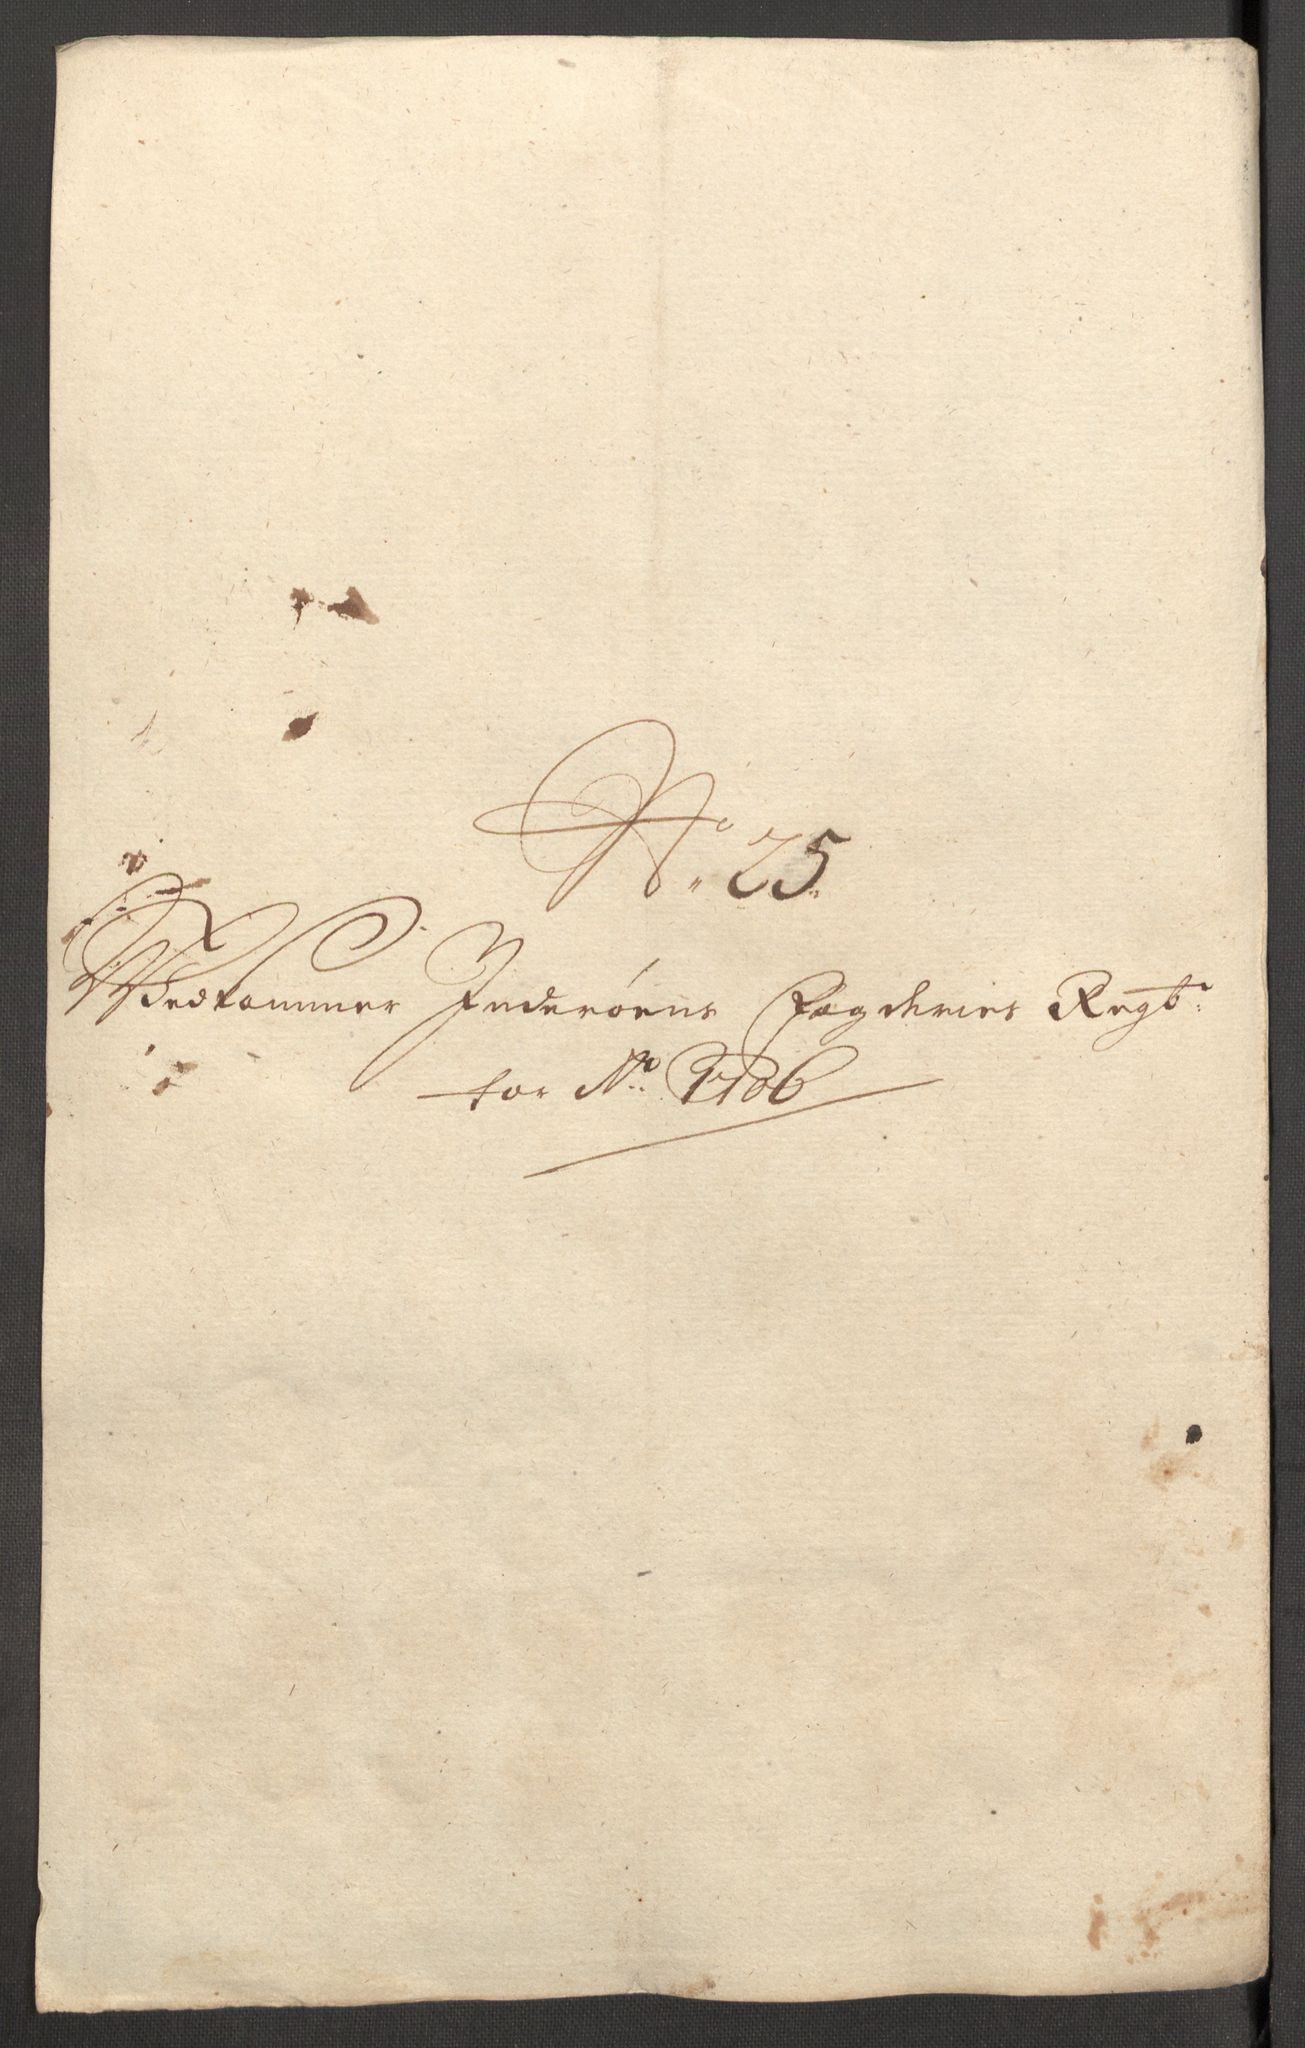 No. 25.
Vedkommer Inderøens Fogderies Regb:
for Ao. 1706